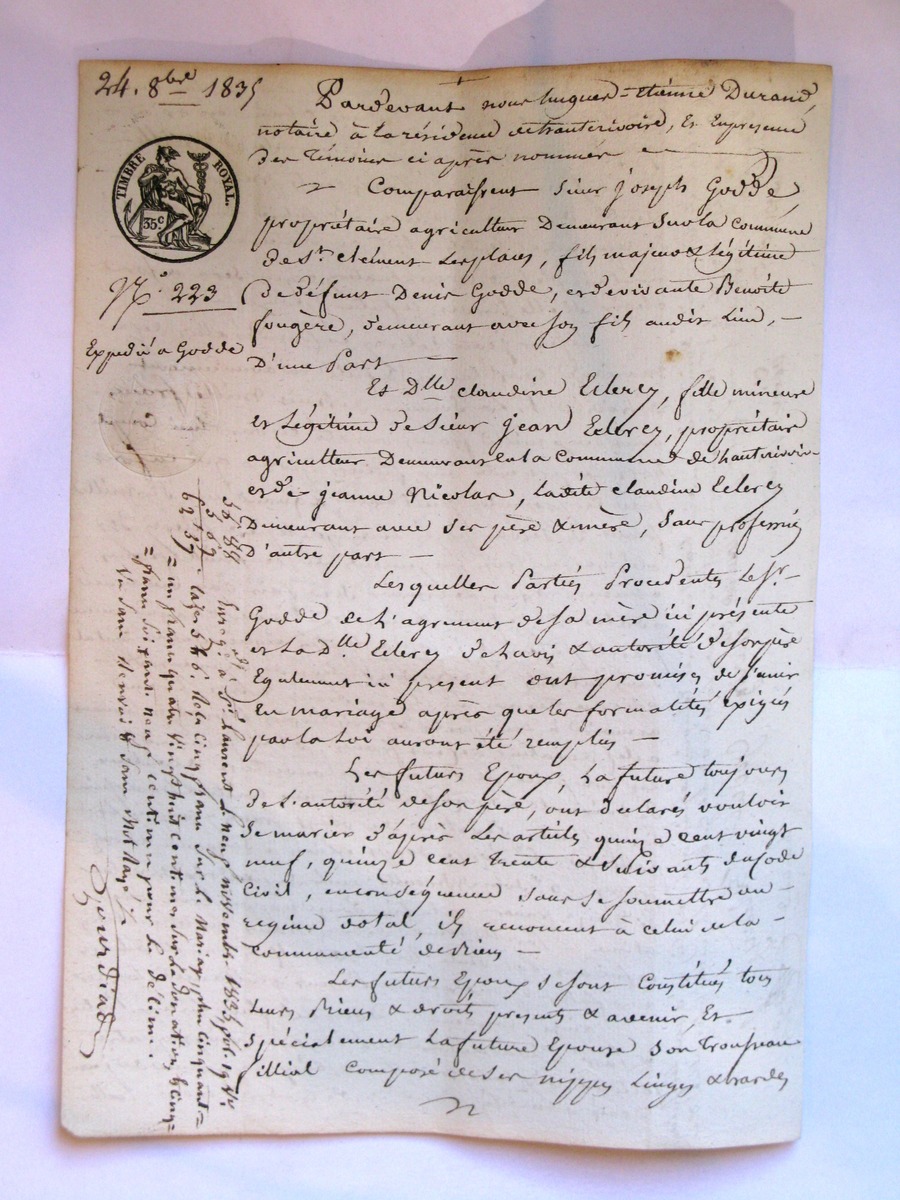 24. 8bre 1835
TIMBRE ROYAL.
35c
N°. 223
Expédié a Godde
Pardevant nous hugues-Etiénne Durand,
notaire à la résidence de hauterivoire, Et Enpresence
des témoins ci après nommés
Comparaissent sieur joseph Godde,
propriétaire agriculteur Demeurant Sur la commune
de St. clément lesplaces, fils majeur & légitime
de défunt Denis Godde, et de vivante Benoite
fougère, demeurant avec son fils audit Lieu, —
D'une Part —
Et Dlle claudine Eclercy, fille mineure
et légitime de sieur jean Eclercy, propriétaire
agriculteur Demeurant en la Commune de hauterivoire
et de jeanne Nicolas, Ladite claudine Eclercy
Demeurant avec ses père & mère, Sans profession
D'autre part —
Lesquelles Parties Procedentes Le Sr.
Godde de L'agrement de sa mère ici présente
et La Dlle Eclercy de L'avis & autorité de son père
Egalement ici present ont promises de S'unir
En mariage après que les formalités exigées
par la Loi auront été remplies —
Les futurs Epoux, La future toujours
de L'autorité de son père, ont déclarés vouloir
Se marier d'après Les articles quinze cent vingt
neuf, quinze cent trente & Suivants du Code
Civil, en conséquence sans se soumettre au
regime dotal, ils renoncent à celui de la
communauté de Biens —
Les futurs Epoux se sont Constitués tous
Leurs Biens & droits presents & avenir, Et
spécialement La future Epouse Son Trousseau
fillial Composé de ses nippes Linges & hardes
Enreg. à St. Laurent le neuf novembre 1835, fol. 19
cinq francs Sur le Mariage, plus cinquante
= un franc quatre Vingt huit centimes Sur la Donation, & cinq
= francs Soixante neuf centimes pour le Décime.